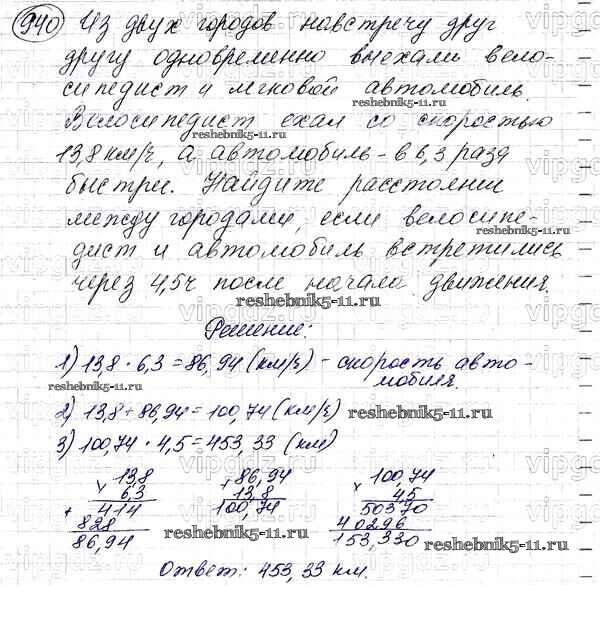 940 Из двух городов навстречу друг
другу одновременно выехали вело-
сипедист и легковой автомобиль.
Велосипедист ехал со скоростью
13,8 км/ч, а автомобиль - в 6,3 раза
быстрее. Найдите расстояние
между городами, если велосипе-
дист и автомобиль встретились
через 4,5ч после начала движения.
Решение:
1) 13,8 · 6,3 = 86,94 (км/ч) - скорость авто-
мобиля.
2) 13,8 + 86,94 = 100,74 (км/ч)
3) 100,74 · 4,5 = 453,33 (км)
× 13,8
6,3
+ 414
828
86,94
+ 86,94
13,8
100,74
× 100,74
4,5
50370
40296
153,330
Ответ: 453,33 км.
reshebnik5-11.ru
reshebnik5-11.ru
reshebnik5-11.ru
reshebnik5-11.ru
reshebnik5-11.ru
reshebnik5-11.ru
reshebnik5-11.ru
vipgdz.ru